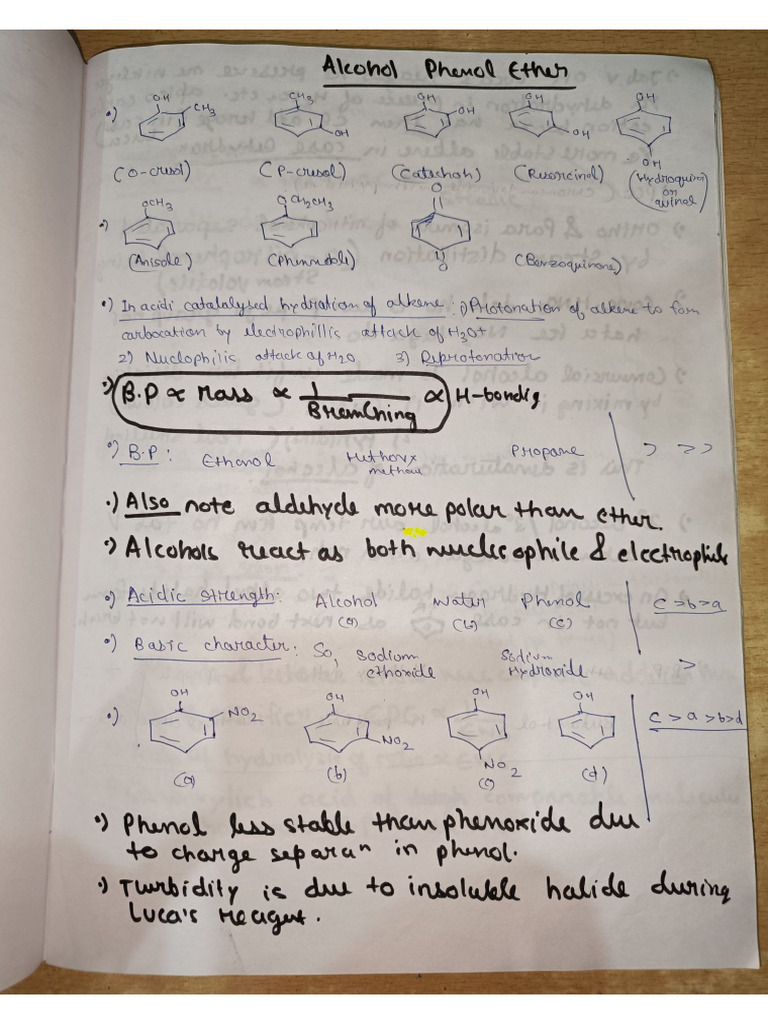 Alcohol Phenol Ether
•) OH CH3 CH3 OH OH OH OH OH OH OH
(O-cresol) (P-cresol) (Catechoh) (Resorcinol) (Hydroquinol or quinol)
•) OCH3 OCH2CH3 O O
(Anisole) (Phennetole) (Benzoquinone)
•) In acidi catalalysed hydration of alkene: 1) Protonation of alkene to form
carbocation by electrophillis attack of H3O+
2) Nuclophilis attack of H2O 3) Deprotonation
•) B.P ∝ Mass ∝ 1/Bremching ∝ H-bondig
•) B.P: Ethanol Methoxy methane Propane > >>
•) Also note aldehyde more polar than ether.
•) Alcohols react as both nucleophile & electrophile
•) Acidic strength: Alcohol water Phenol c>b>a
(a) (b) (c)
•) Basic character: So, sodium ethoxide sodium Hydroxide >
•) OH NO2 OH NO2 OH NO2 OH c>a>b>d
(a) (b) (c) (d)
•) Phenol less stable than phenoxide due
to charge separaⁿ in phenol.
•) Turbidity is due to insoluble halide during
Luca's reagent.